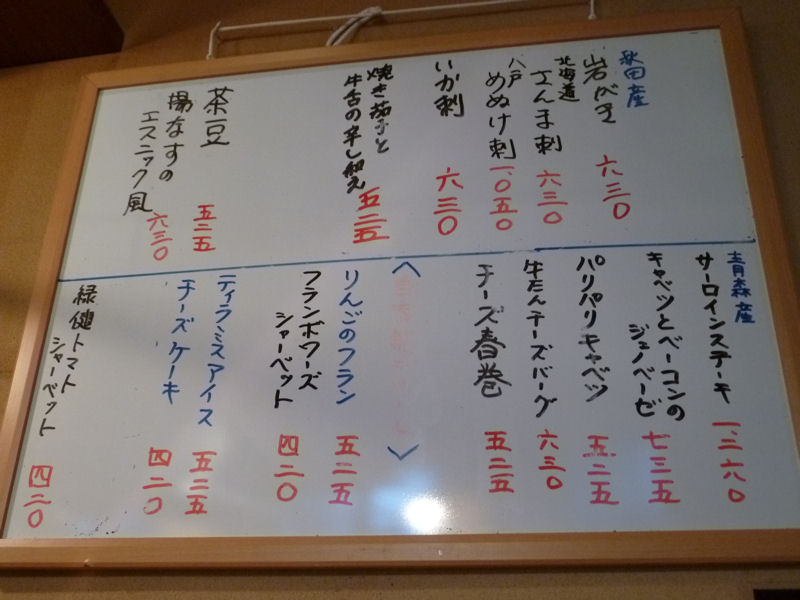 秋田産
岩がき
六三〇
北海道
さんま刺
六三〇
八戸
めぬけ刺
一、〇五〇
いか刺
六三〇
焼き茄子と
牛舌の辛し和え
五二五
茶豆
五二五
揚なすの
エスニック風
六三〇
青森産
サーロインステーキ
一、三六〇
キャベツとベーコンの
ジェノベーゼ
七三五
パリパリキャベツ
五二五
牛たんチーズバーグ
六三〇
チーズ春巻
五二五
りんごのフラン
五二五
フランボワーズ
シャーベット
四二〇
ティラミスアイス
五二五
チーズケーキ
四二〇
緑健トマト
シャーベット
四二〇